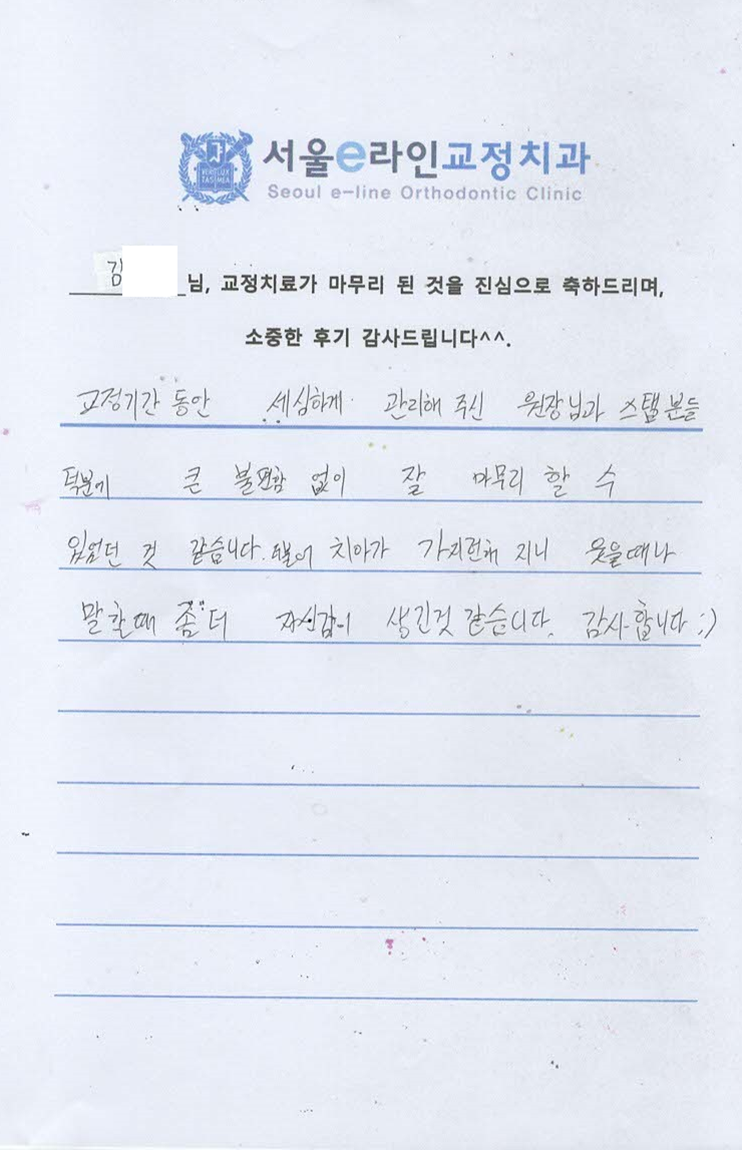 서울e라인교정치과
Seoul e-line Orthodontic Clinic
김 님, 교정치료가 마무리 된 것을 진심으로 축하드리며,
소중한 후기 감사드립니다^^.
교정기간 동안 세심하게 관리해 주신 원장님과 스탭분들
덕분에 큰 불편함 없이 잘 마무리 할 수
있었던 것 같습니다. 더불어 치아가 가지런해 지니 웃을때나
말할때 좀 더 자신감이 생긴것 같습니다. 감사합니다 :)